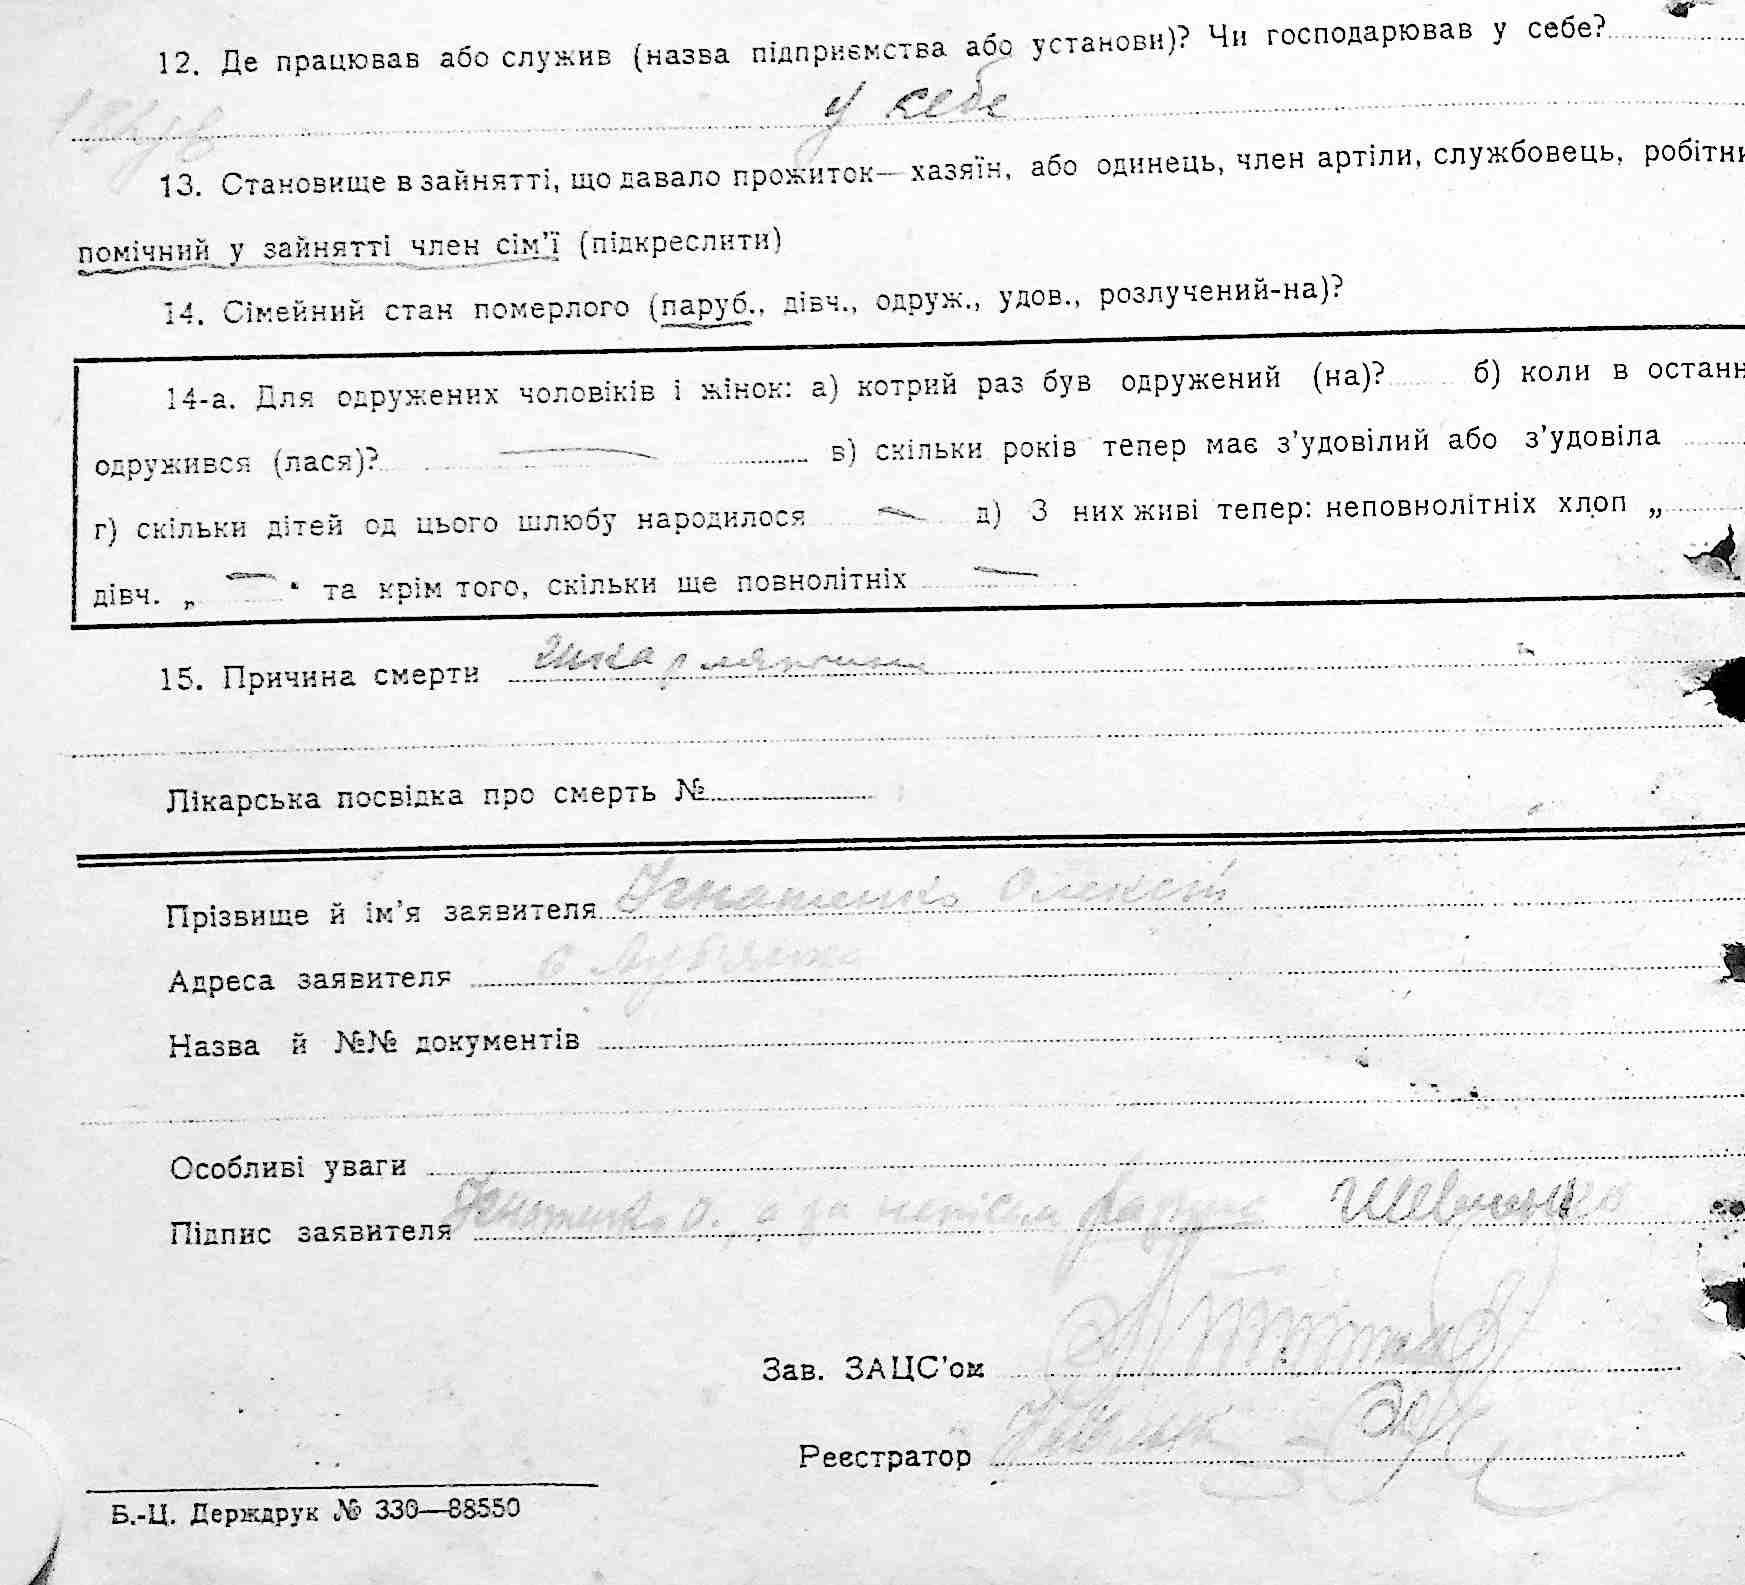 12. Де працював або служив (назва підприємства або установи)? Чи господарював у себе?
у себе
13. Становище в зайнятті, що давало прожиток—хазяїн, або одинець, член артіли, службовець, робітни
помічний у зайнятті член сім'ї (підкреслити)
14. Сімейний стан померлого (паруб., дівч., одруж., удов., розлучений-на)?
14-а. Для одружених чоловіків і жінок: а) котрий раз був одружений (на)? б) коли в останн
одружився (лася)? — в) скільки років тепер має з'удовілий або з'удовіла
г) скільки дітей од цього шлюбу народилося — д) З них живі тепер: неповнолітніх хлоп „
дівч. „ — " та крім того, скільки ще повнолітніх —
15. Причина смерти
Лікарська посвідка про смерть №
Прізвище й ім'я заявителя Ігнатенко Олексій
Адреса заявителя с
Назва й №№ документів
Особливі уваги
Підпис заявителя Ігнатенко О., а за
Зав. ЗАЦС'ом
Реєстратор
Б.-Ц. Держдрук № 330—88550